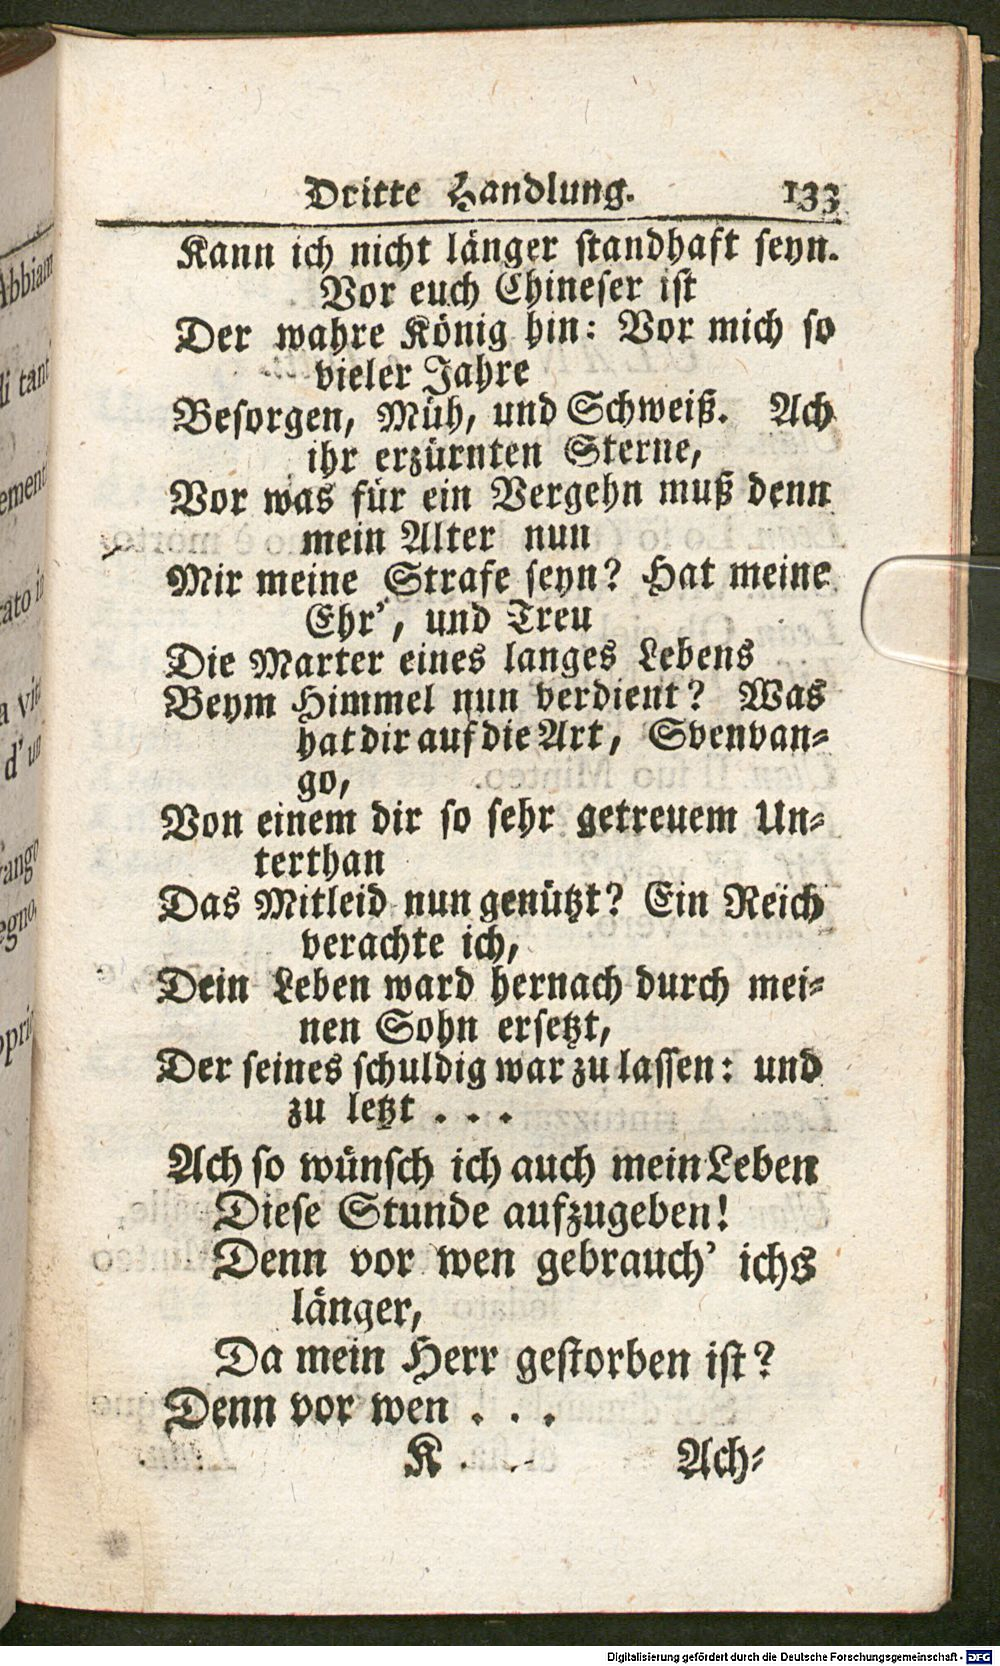 Dritte Handlung. 133
Kann ich nicht länger standhaft seyn.
Vor euch Chineser ist
Der wahre König hin: Vor mich so
vieler Jahre
Besorgen, Müh, und Schweiß. Ach
ihr erzürnten Sterne,
Vor was für ein Vergehn muß denn
mein Alter nun
Mir meine Strafe seyn? Hat meine
Ehr', und Treu
Die Marter eines langes Lebens
Beym Himmel nun verdient? Was
hat dir auf die Art, Svenvan-
go,
Von einem dir so sehr getreuem Un-
terthan
Das Mitleid nun genützt? Ein Reich
verachte ich,
Dein Leben ward hernach durch mei-
nen Sohn ersetzt,
Der seines schuldig war zu lassen: und
zu letzt . . .
Ach so wünsch ich auch mein Leben
Diese Stunde aufzugeben!
Denn vor wen gebrauch' ichs
länger,
Da mein Herr gestorben ist?
Denn vor wen . . .
K Ach-
Digitalisierung gefördert durch die Deutsche Forschungsgemeinschaft - DFG